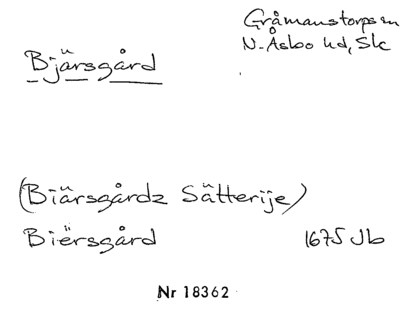 Gråmanstorps sn
Bjärsgård
N. Åsbo hd, Sk
(Biärsgårdz Sätterije)
Biërsgård 1675 Jb
Nr 18362